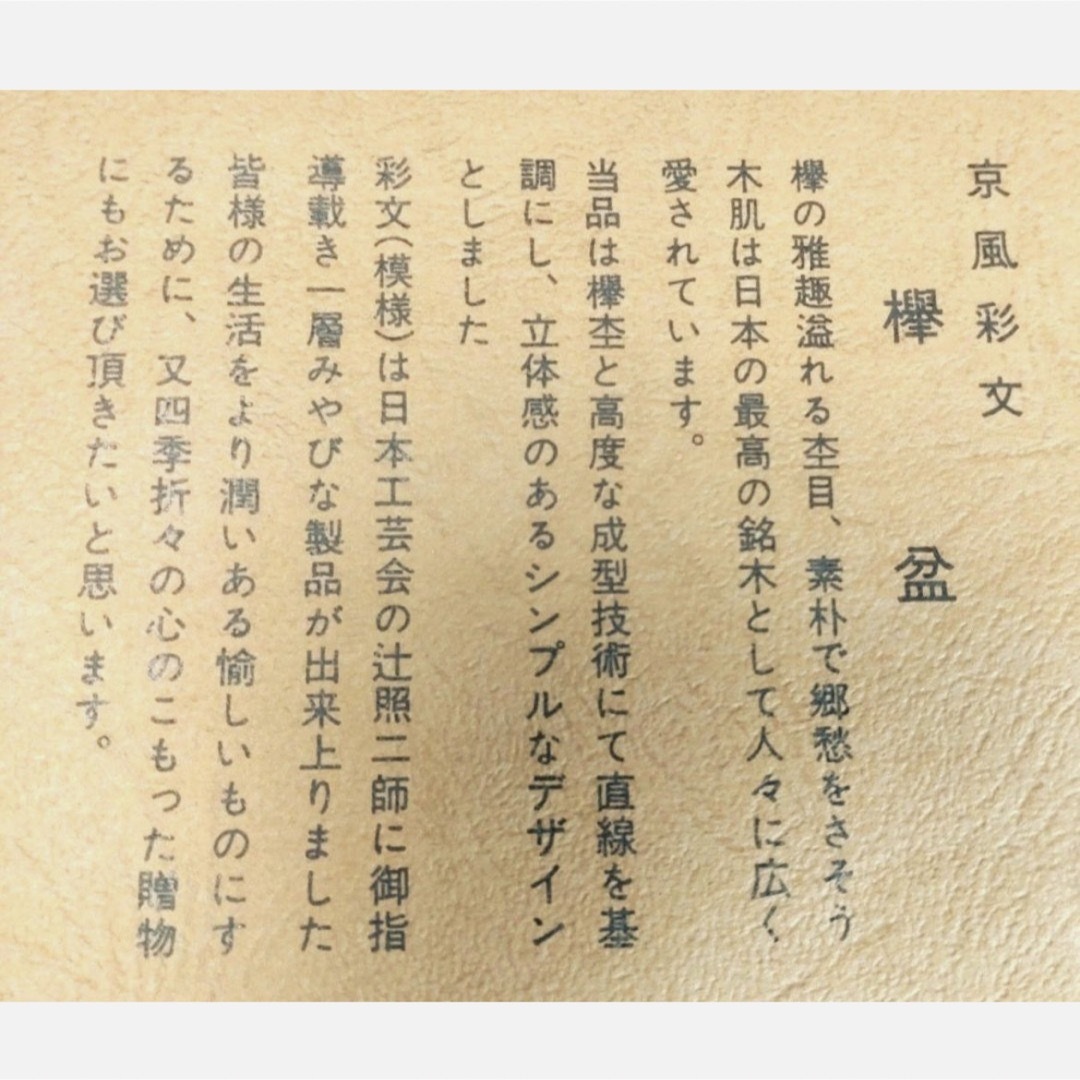 京風彩文
欅盆
欅の雅趣溢れる杢目、素朴で郷愁をさそう
木肌は日本の最高の銘木として人々に広く
愛されています。
当品は欅杢と高度な成型技術にて直線を基
調にし、立体感のあるシンプルなデザイン
としました
彩文(模様)は日本工芸会の辻照二師に御指
導載き一層みやびな製品が出来上りました
皆様の生活をより潤いある愉しいものにす
るために、又四季折々の心のこもった贈物
にもお選び頂きたいと思います。